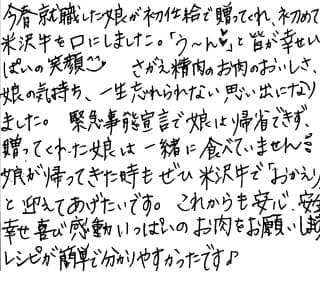 今春就職した娘が初任給で贈ってくれ、初めて
米沢牛を口にしました。「う〜ん♥」と皆が幸せい
ぱいの笑顔 さがえ精肉のお肉のおいしさ、
娘の気持ち、一生忘れられない思い出になり
ました。 緊急事態宣言で娘は帰省できず、
贈ってくれた娘は一緒に食べていません
娘が帰ってきた時もぜひ米沢牛で「おかえり
と迎えてあげたいです。これからも安心、安全
幸せ喜び感動いっぱいのお肉をお願いし
レシピが簡単で分かりやすかったです♪